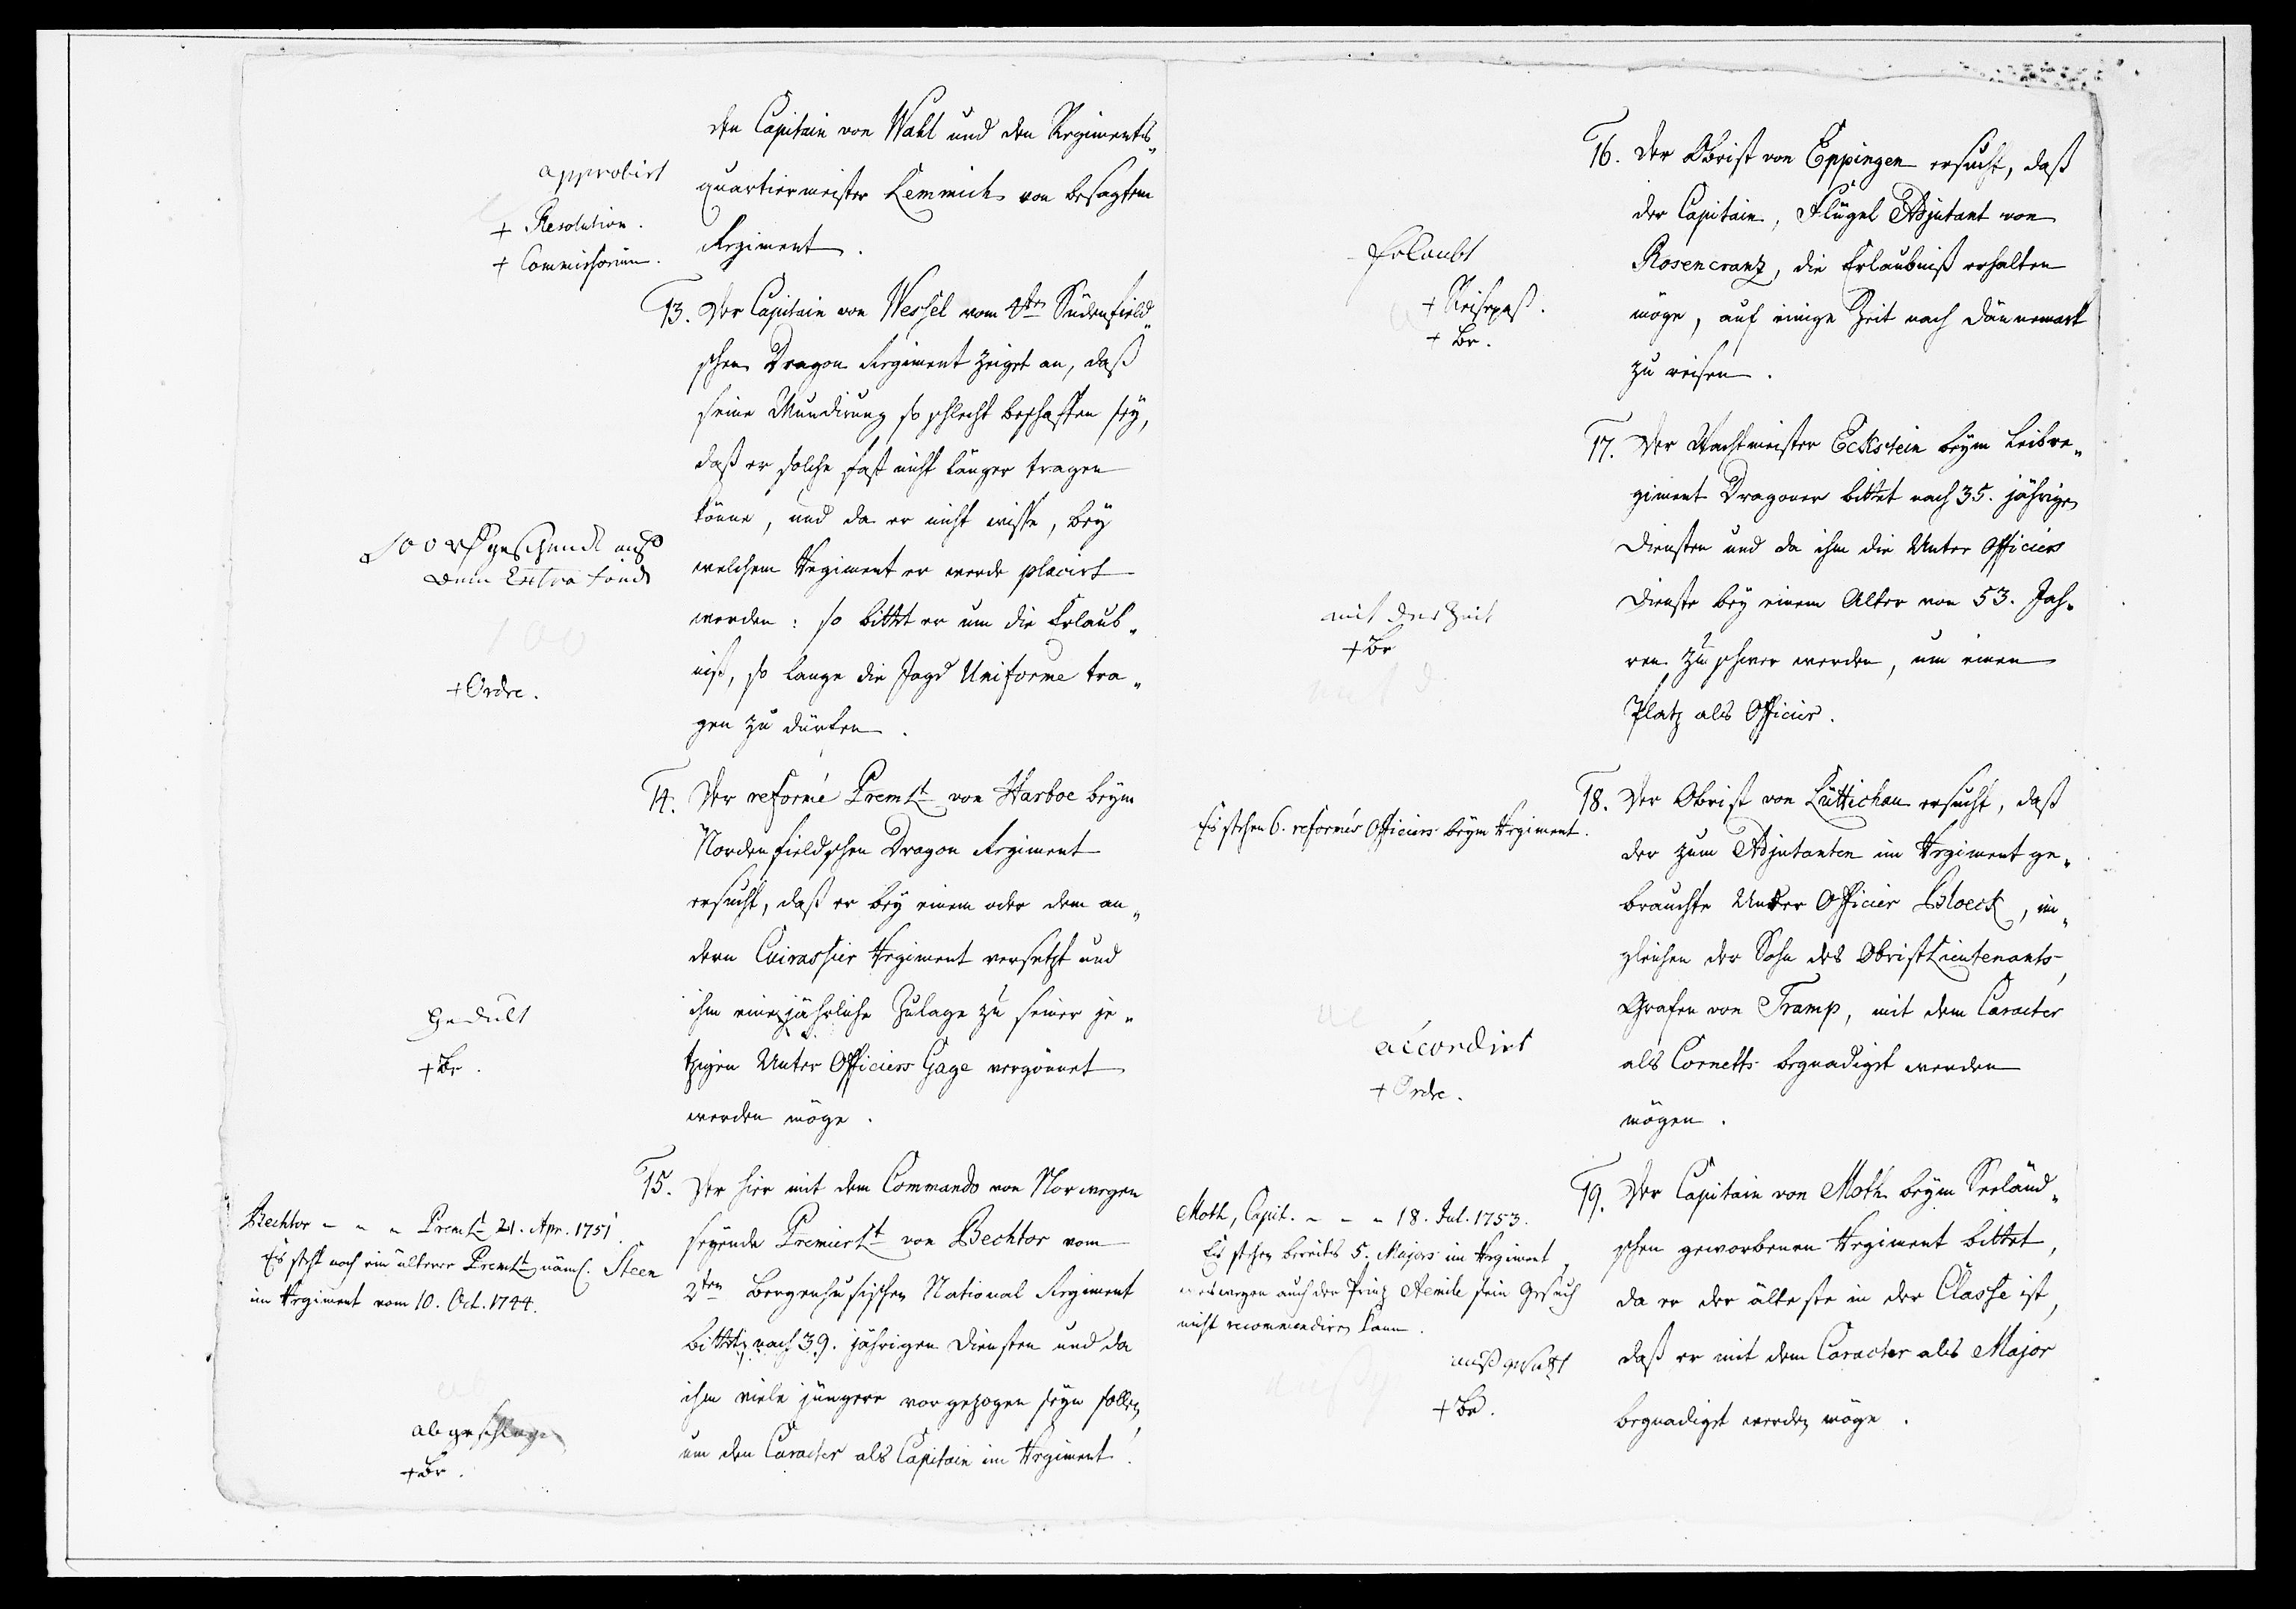 den Capitain von Wahl und den Regiments„
quartiermeister Lemmich von besagtem
Regiment.
approbirt
+ Resolution.
+ Commissorium.
13. Der Capitain von Wessel vom 4ten Südenfield„
schen Dragon Regiment zeiget an, daß
seine Mundirung so schlecht beschaffen sey,
daß er solche fast nicht länger tragen
könne, und da er nicht wisse, bey
welchem Regiment er werde placirt
werden: so bittet er um die Erlaub„
niß, so lange die Jagd Uniforme tra„
gen zu dürfen.
100 geschenckt auß
dem Extra fond
100
+ Ordre.
14. Der reformé PremLt von Harboe beym
Nordenfieldschen Dragon Regiment
ersucht, daß er bey einem oder dem an„
dern Cuirassier Regiment versetzt und
ihm eine jährliche Zulage zu seiner je„
tzigen Unter Officiers Gage vergönnet
werden möge.
Gedult
+ Br.
15. Der hier mit dem Commando von Norwegen
seyende PremierLt von Bechtor vom
2ten Bergenhusischen National Regiment
bittet, nach 39. jährigen Diensten und da
ihm viele jüngere vorgezogen seyn sollen,
um den Caracter als Capitain im Regiment.
Bechtor - - - PremLt 21. Apr. 1751.
Es steht noch ein älterer PremLt näml. Steen
im Regiment vom 10. Oct. 1744.
abgeschlagen
+ Br.
16. Der Obrist von Eppingen ersucht, daß
der Capitain, Flügel Adjutant von
Rosencrantz, die Erlaubniß erhalten
möge, auf einige Zeit nach Dännemark
zu reisen.
Erlaubt
+ Reisepaß.
+ Br.
17. Der Wachtmeister Eckstein beym Leibre„
giment Dragoner bittet nach 35. jährigen
Diensten und da ihm die Unter Officiers
Dienste bey einem Alter von 53. Jah„
ren zu schwer werden, um einen
Platz als Officier.
mit der Zeit
+ Br
18. Der Obrist von Lüttichau ersucht, daß
der zum Adjutanten im Regiment ge„
brauchte Unter Officier Bloeck, im„
gleichen der Sohn des ObristLieutenants,
Grafen von Tramp, mit dem Caracter
als Cornetts begnadiget werden
mögen.
Es stehen 6. reformés Officiers beym Regiment.
accordirt
+ Ordre.
19. Der Capitain von Moth beym Seeländ„
schen geworbenen Regiment bittet,
da er der älteste in der Classe ist,
daß er mit dem Caracter als Major
begnadiget werden möge.
Moth, Capit. - - - 18. Jul. 1753.
Es stehen bereits 5. Majors im Regiment,
weswegen auch der Prinz Aemile sein Gesuch
nicht recommendiren kann.
außgesetzt
+ Br.